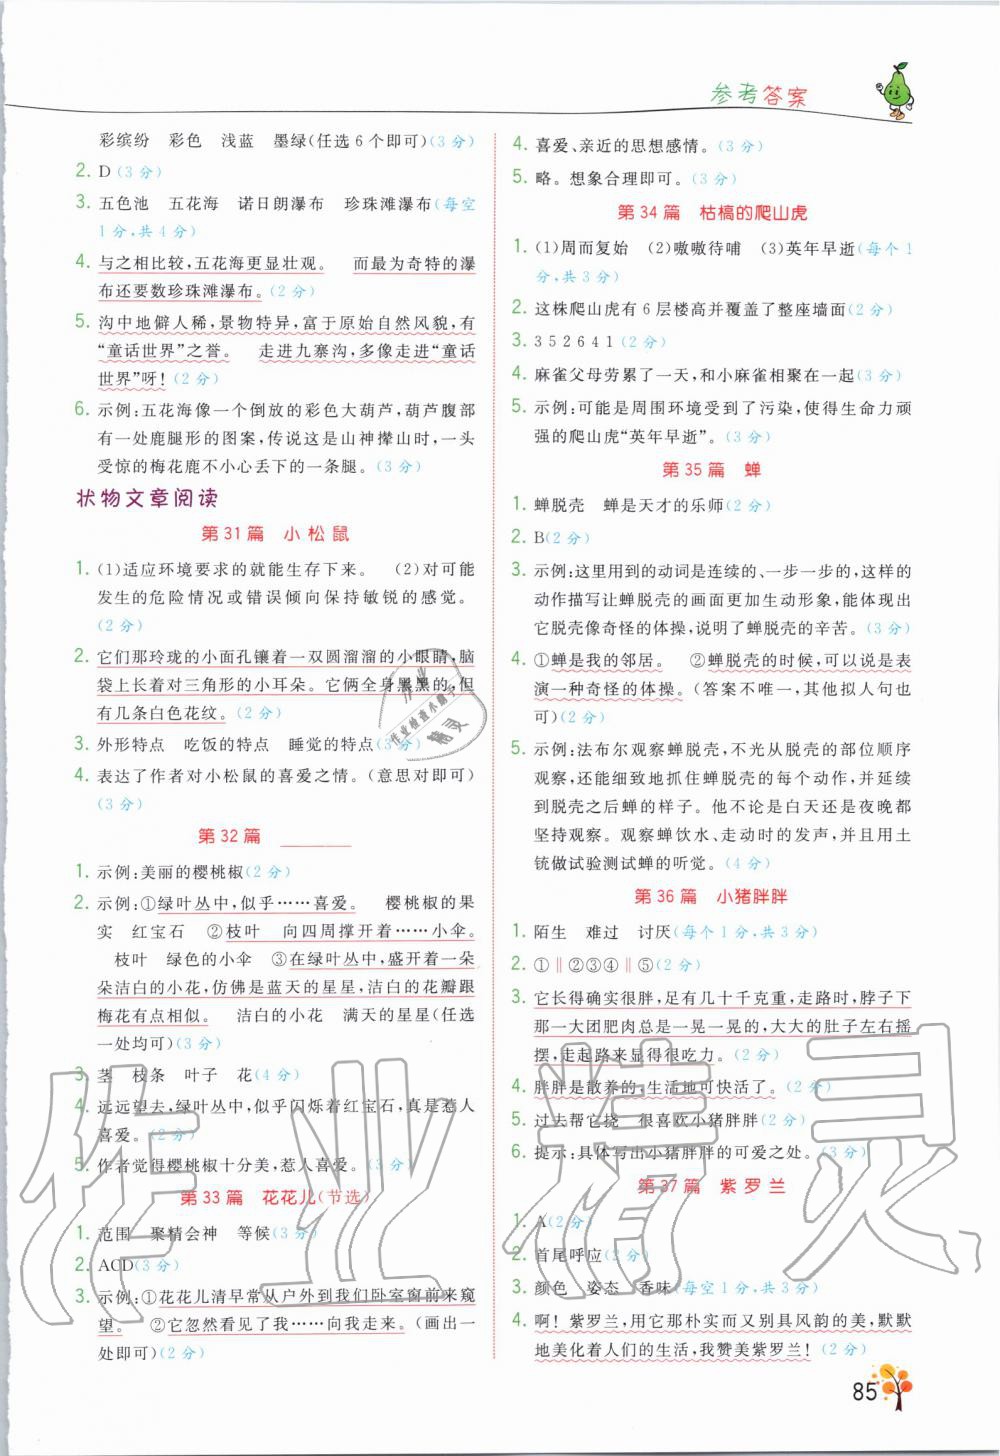 参考答案
彩缤纷　彩色　浅蓝　墨绿(任选6个即可)(3分)
2. D(3分)
3. 五色池　五花海　诺日朗瀑布　珍珠滩瀑布(每空
1分,共4分)
4. 与之相比较,五花海更显壮观。　而最为奇特的瀑
布还要数珍珠滩瀑布。(2分)
5. 沟中地僻人稀,景物特异,富于原始自然风貌,有
“童话世界”之誉。　走进九寨沟,多像走进“童话
世界”呀!(2分)
6. 示例:五花海像一个倒放的彩色大葫芦,葫芦腹部
有一处鹿腿形的图案,传说这是山神撵山时,一头
受惊的梅花鹿不小心丢下的一条腿。(3分)
状物文章阅读
第31篇　小松鼠
1. (1)适应环境要求的就能生存下来。　(2)对可能
发生的危险情况或错误倾向保持敏锐的感觉。
(2分)
2. 它们那玲珑的小面孔镶着一双圆溜溜的小眼睛,脑
袋上长着对三角形的小耳朵。它俩全身黑黑的,但
有几条白色花纹。(2分)
3. 外形特点　吃饭的特点　睡觉的特点(3分)
4. 表达了作者对小松鼠的喜爱之情。(意思对即可)
(3分)
第32篇
1. 示例:美丽的樱桃椒(2分)
2. 示例:①绿叶丛中,似乎……喜爱。　樱桃椒的果
实　红宝石　②枝叶　向四周撑开着……小伞。
枝叶　绿色的小伞　③在绿叶丛中,盛开着一朵
朵洁白的小花,仿佛是蓝天的星星,洁白的花瓣跟
梅花有点相似。　洁白的小花　满天的星星(任选
一处均可)(3分)
3. 茎　枝条　叶子　花(4分)
4. 远远望去,绿叶丛中,似乎闪烁着红宝石,真是惹人
喜爱。(2分)
5. 作者觉得樱桃椒十分美,惹人喜爱。(3分)
第33篇　花花儿(节选)
1. 范围　聚精会神　等候(3分)
2. ACD(3分)
3. 示例:①花花儿清早常从户外到我们卧室窗前来窥
望。　②它忽然看见了我……向我走来。(画出一
处即可)(2分)
4. 喜爱、亲近的思想感情。(3分)
5. 略。想象合理即可。(3分)
第34篇　枯槁的爬山虎
1. (1)周而复始　(2)嗷嗷待哺　(3)英年早逝(每个1
分,共3分)
2. 这株爬山虎有6层楼高并覆盖了整座墙面(2分)
3. 3 5 2 6 4 1(2分)
4. 麻雀父母劳累了一天,和小麻雀相聚在一起(3分)
5. 示例:可能是周围环境受到了污染,使得生命力顽
强的爬山虎“英年早逝”。(3分)
第35篇　蝉
1. 蝉脱壳　蝉是天才的乐师(2分)
2. B(2分)
3. 示例:这里用到的动词是连续的、一步一步的,这样的
动作描写让蝉脱壳的画面更加生动形象,能体现出
它脱壳像奇怪的体操,说明了蝉脱壳的辛苦。(3分)
4. ①蝉是我的邻居。　②蝉脱壳的时候,可以说是表
演一种奇怪的体操。(答案不唯一,其他拟人句也
可)(2分)
5. 示例:法布尔观察蝉脱壳,不光从脱壳的部位顺序
观察,还能细致地抓住蝉脱壳的每个动作,并延续
到脱壳之后蝉的样子。他不论是白天还是夜晚都
坚持观察。观察蝉饮水、走动时的发声,并且用土
铳做试验测试蝉的听觉。(4分)
第36篇　小猪胖胖
1. 陌生　难过　讨厌(每个1分,共3分)
2. ①‖②③④‖⑤(2分)
3. 它长得确实很胖,足有几十千克重,走路时,脖子下
那一大团肥肉总是一晃一晃的,大大的肚子左右摇
摆,走起路来显得很吃力。(2分)
4. 胖胖是散养的,生活地可快活了。(2分)
5. 过去帮它挠　很喜欢小猪胖胖(2分)
6. 提示:具体写出小猪胖胖的可爱之处。(3分)
第37篇　紫罗兰
1. A(2分)
2. 首尾呼应(2分)
3. 颜色　姿态　香味(每空1分,共3分)
4. 啊! 紫罗兰,用它那朴实而又别具风韵的美,默默
地美化着人们的生活,我赞美紫罗兰!(2分)
85
作业精灵